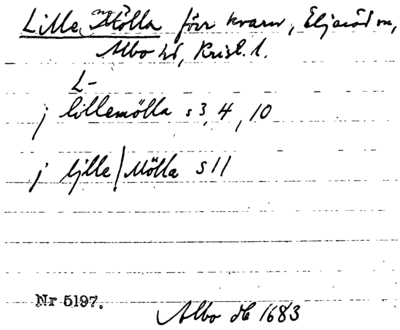 Lille Mölla förr kvarn, Eljaröd sn,
Albo hd, Krist. l.
L-
j lillemölla s 3, 4, 10
j lille/Mölla s 11
Nr 5197.
Albo db 1683